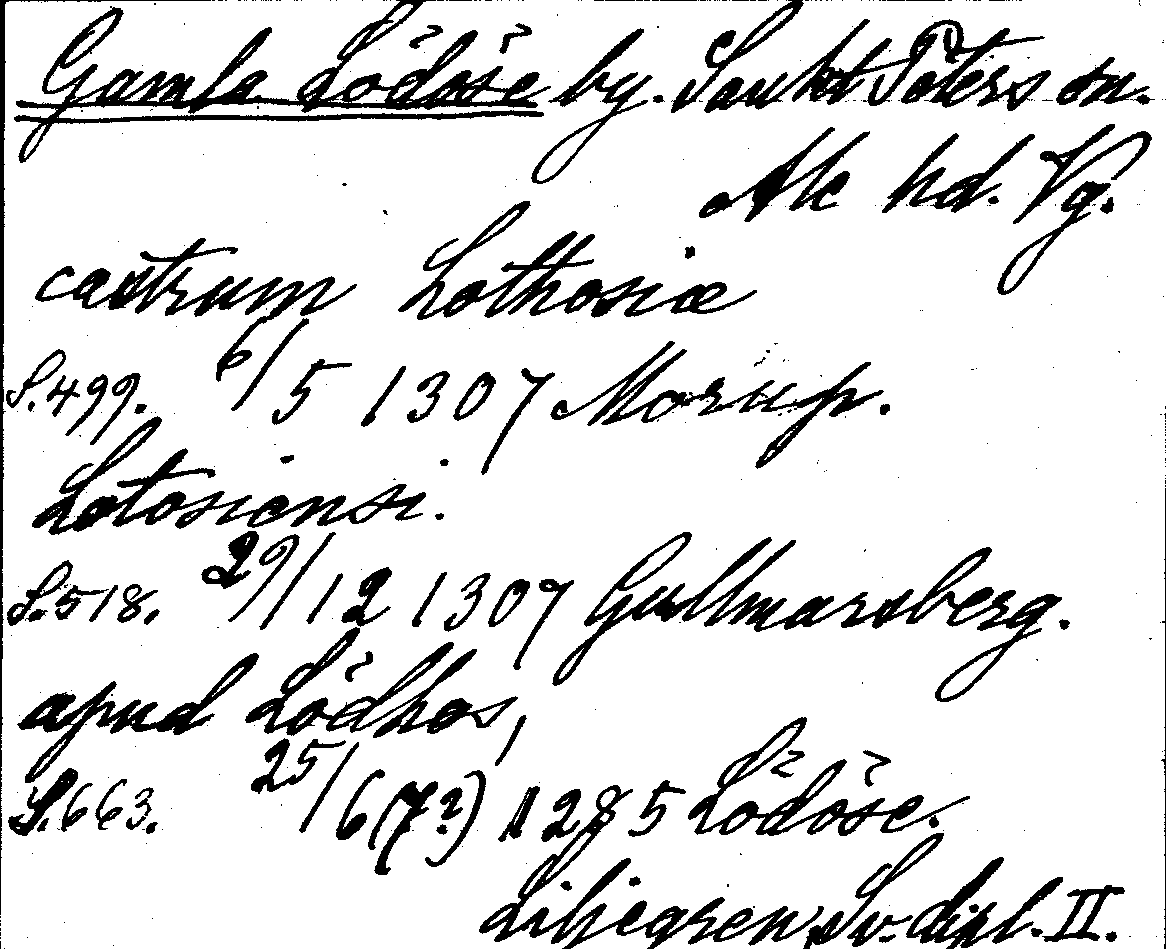 Gamla Lödöse by. Sankt Peters sn.
Ale hd. Vg.
castrum Lothosiæ
S. 499. 6/5 1307 Morup.
Lotosiensi.
S. 518. 29/12 1307 Gullmarsberg.
apud Lödhos,
S. 663. 25/6 (7?) 1285 Lödöse.
Liljegren, Sv. dipl. II.